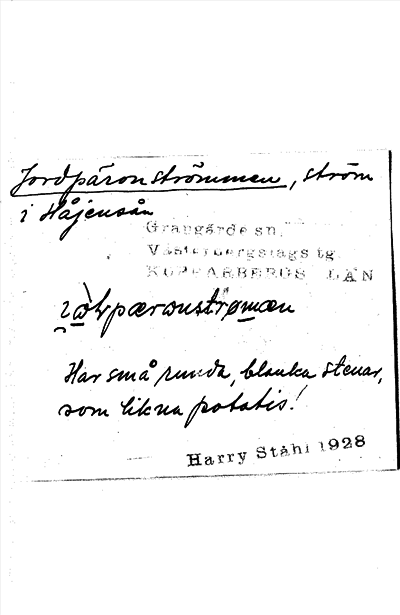 Jordpäronströmmen, ström
i Håjensån
Grangärde sn,
Västerbergslags tg
KOPPARBERGS LÄN
Har små runda, blanka stenar,
som likna potatis!
Harry Ståhl 1928